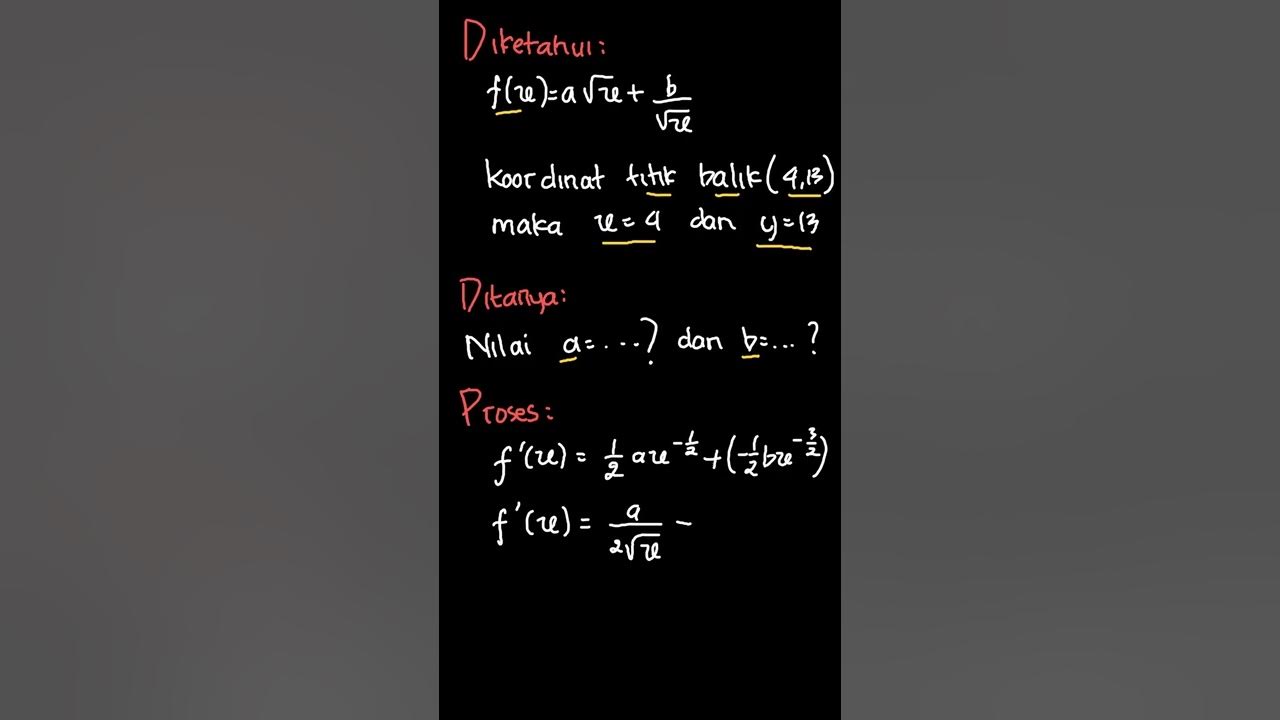 Diketahui:
f(x)=a√x+b/√x
koordinat titik balik(4,13)
maka x=4 dan y=13
Ditanya:
Nilai a=...? dan b=...?
Proses:
f'(x) = 1/2 ax^(-1/2)+(-1/2 bx^(-3/2))
f'(x) = a/(2√x) -